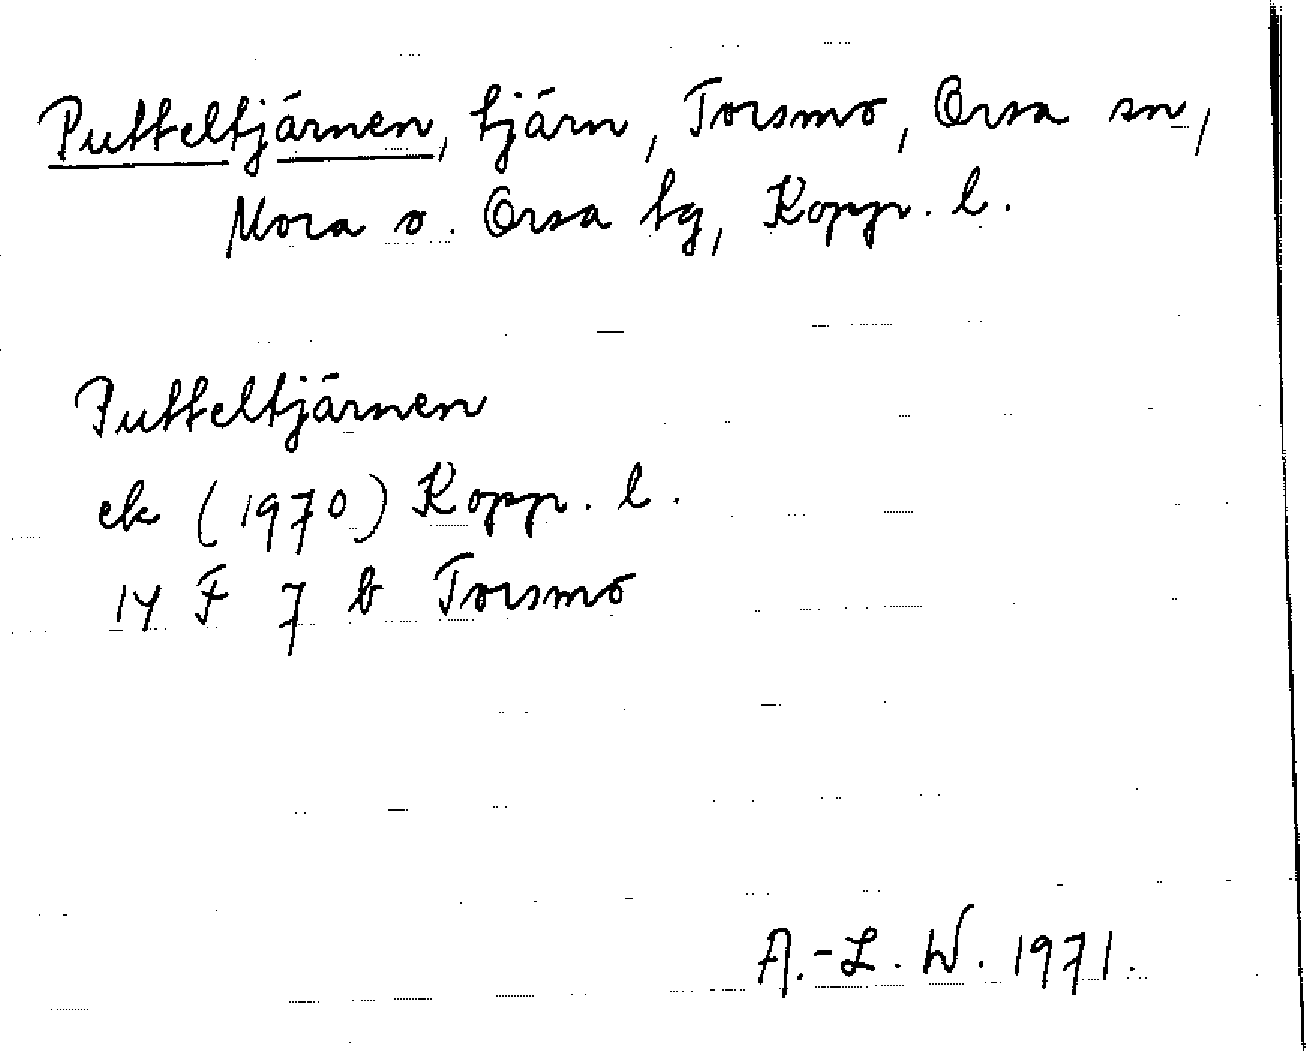 Putteltjärnen, tjärn, Torsmo, Orsa sn,
Mora o. Orsa tg, Kopp. l.
Putteltjärnen
ek (1970) Kopp. l.
14 F 7 b Torsmo
A.-L. W. 1971.